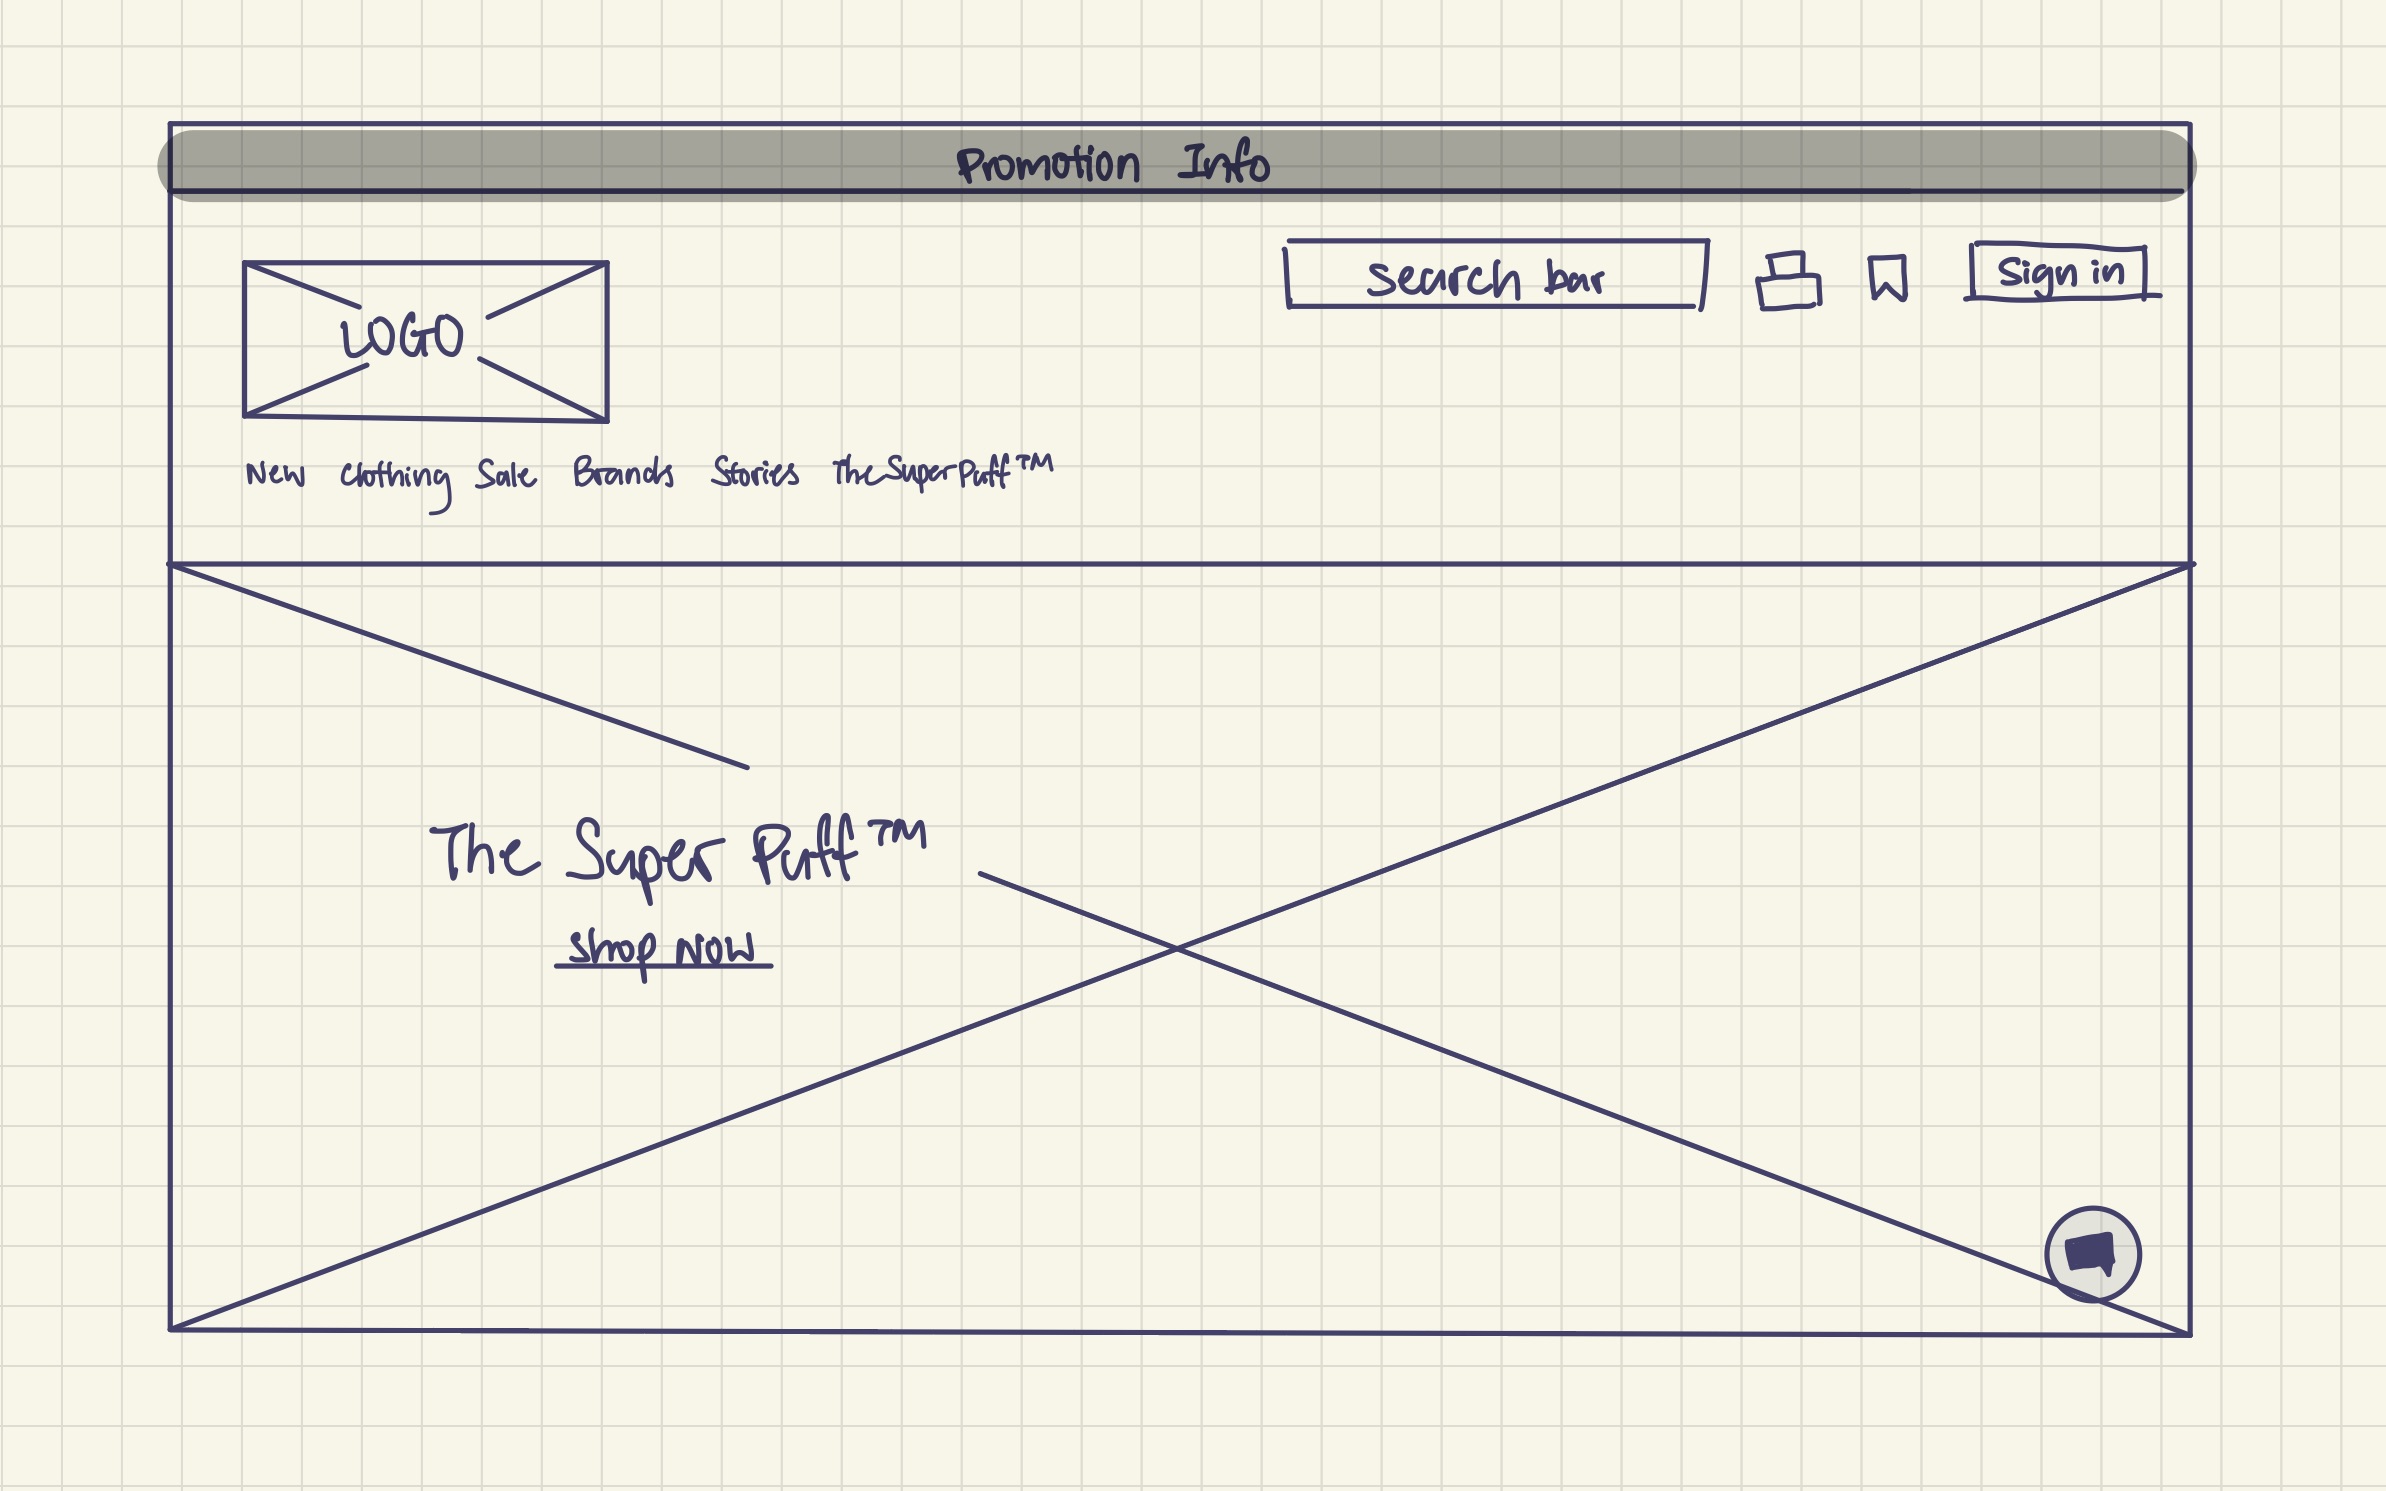 Promotion Info
LOGO
search bar
sign in
New Clothing Sale Brands Stories The Super Puff™
The Super Puff™
shop now